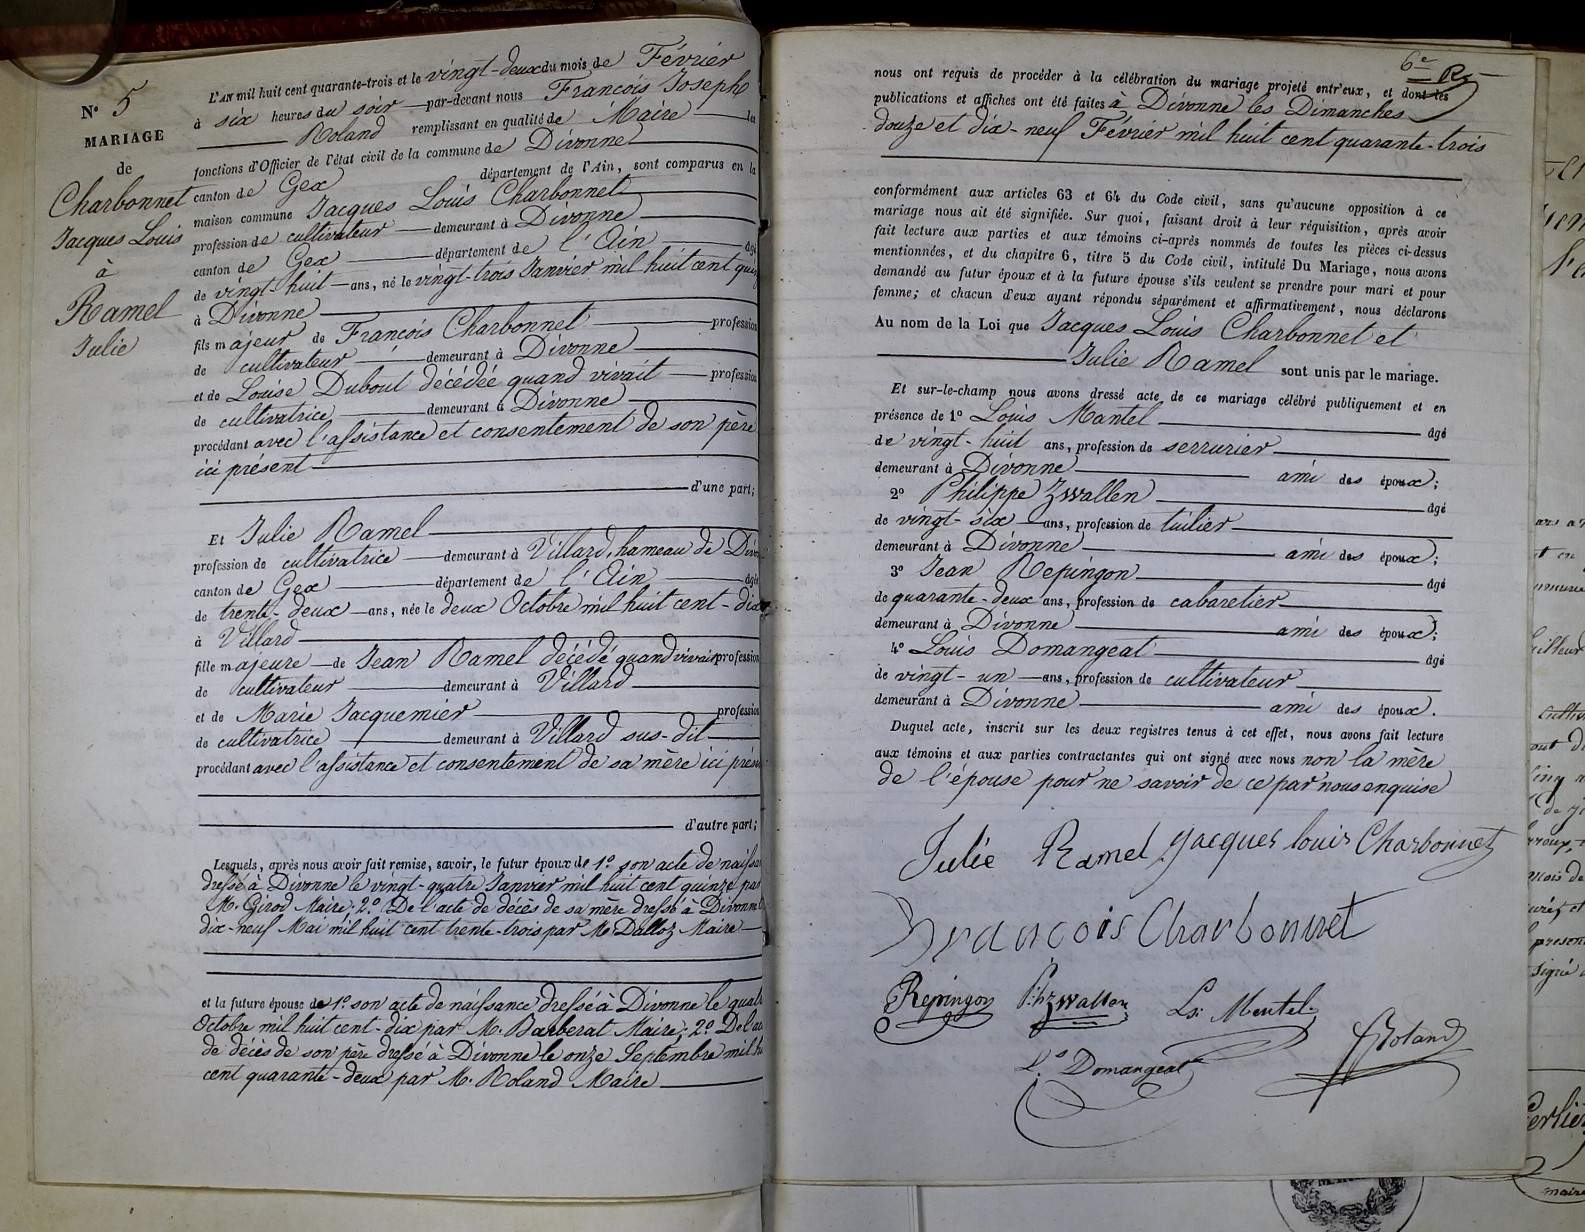 N° 5
MARIAGE
de
Charbonnet
Jacques Louis
à
Ramel
Julie
L'AN mil huit cent quarante-trois et le vingt-deux du mois de Février
à six heures du soir par-devant nous François Joseph
Roland remplissant en qualité de Maire les
fonctions d'Officier de l'état civil de la commune de Divonne
canton de Gex département de l'Ain, sont comparus en la
maison commune Jacques Louis Charbonnet
profession de cultivateur demeurant à Divonne
canton de Gex département de l'Ain âgé
de vingt-huit ans, né le vingt-trois Janvier mil huit cent quin
à Divonne
fils majeur de François Charbonnet profession
de cultivateur demeurant à Divonne
et de Louise Duboul décédée quand vivait profession
de cultivatrice demeurant à Divonne
procédant avec l'assistance et consentement de son père
ici présent
d'une part;
Et Julie Ramel
profession de cultivatrice demeurant à Villard, hameau de Divon
canton de Gex département de l'Ain âgée
de trente-deux ans, née le deux Octobre mil huit cent-dix
à Villard
fille majeure de Jean Ramel décédé quand vivait profession
de cultivateur demeurant à Villard
et de Marie Jacquemier profession
de cultivatrice demeurant à Villard sus-dit
procédant avec l'assistance et consentement de sa mère ici prése
d'autre part;
Lesquels, après nous avoir fait remise, savoir, le futur époux de 1° son acte de naissa
dressé à Divonne le vingt-quatre Janvier mil huit cent quinze par
M. Girod Maire; 2° De l'acte de décès de sa mère dressé à Divonne l
dix-neuf Mai mil huit cent trente-trois par M. Dalloz Maire
et la future épouse de 1° son acte de naissance dressé à Divonne le quat
Octobre mil huit cent-dix par M. Barberat Maire; 2° De l'ac
de décès de son père dressé à Divonne le onze Septembre mil h
cent quarante-deux par M. Roland Maire
6e
nous ont requis de procéder à la célébration du mariage projeté entr'eux, et dont les
publications et affiches ont été faites à Divonne les Dimanches
douze et dix-neuf Février mil huit cent quarante-trois
conformément aux articles 63 et 64 du Code civil, sans qu'aucune opposition à ce
mariage nous ait été signifiée. Sur quoi, faisant droit à leur réquisition, après avoir
fait lecture aux parties et aux témoins ci-après nommés de toutes les pièces ci-dessus
mentionnées, et du chapitre 6, titre 5 du Code civil, intitulé Du Mariage, nous avons
demandé au futur époux et à la future épouse s'ils veulent se prendre pour mari et pour
femme; et chacun d'eux ayant répondu séparément et affirmativement, nous déclarons
Au nom de la Loi que Jacques Louis Charbonnet et
Julie Ramel sont unis par le mariage.
Et sur-le-champ nous avons dressé acte de ce mariage célébré publiquement et en
présence de 1° Louis Mantel âgé
de vingt-huit ans, profession de serrurier
demeurant à Divonne ami des époux;
2° Philippe Zwallen âgé
de vingt-six ans, profession de tuilier
demeurant à Divonne ami des époux;
3° Jean Repingon âgé
de quarante-deux ans, profession de cabaretier
demeurant à Divonne ami des époux;
4° Louis Domangeat âgé
de vingt-un ans, profession de cultivateur
demeurant à Divonne ami des époux.
Duquel acte, inscrit sur les deux registres tenus à cet effet, nous avons fait lecture
aux témoins et aux parties contractantes qui ont signé avec nous non la mère
de l'épouse pour ne savoir de ce par nous enquise
Julie Ramel Jacques Louis Charbonnet
François Charbonnet
Repingon Ph: zwallen Ls: Mentel
Ls Domangeat Roland